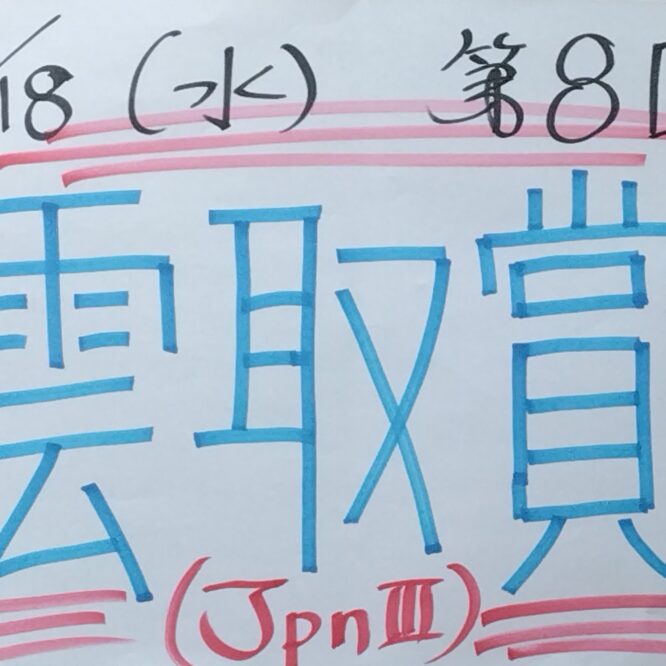 /18(水) 第8回
雲取賞
(JpnⅢ)